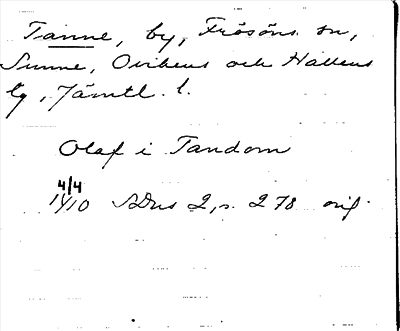 Tanne, by, Frösöns sn,
Sunne, Ovikens och Hallens
tg, Jämtl. l.
Olaf i Tandom
4/4
1410 SDns 2, s. 278 orig.